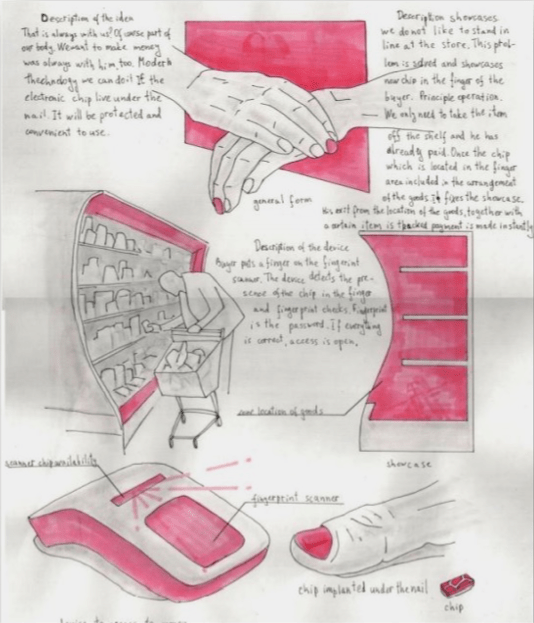 Description of the idea
That is always with us? Of corse part of
our body. We want to make money
was always with him too. Modern
thechnology we can do it If the
electronic chip live under the
nail. It will be protected and
convenient to use.
Description showcases
we do not like to stand in
line at the store. This prob-
lem is solved and showcases
now chip in the finger of the
buyer. Principle operation.
We only need to take the item
off the shelf and he has
already paid. Once the chip
which is located in the finger
area included in the arrangement
of the goods It fixes the showcase.
His exit from the location of the goods, together with
a certain item is tracked payment is made instantly
general form
Description of the device
Buyer puts a finger on the fingerint
scanner. The device detects the pre-
sense of the chip in the finger
and fingerprint checks. Fingerprint
is the password. If everything
is correct, access is open.
location of goods
showcase
scanner chip availability
fingerprint scanner
chip implanted under the nail
chip